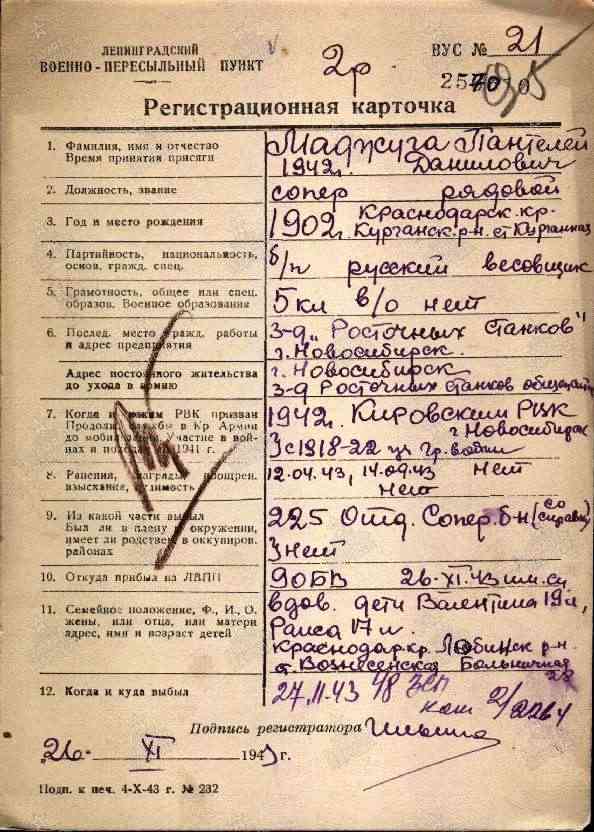 ЛЕНИНГРАДСКИЙ
ВОЕННО-ПЕРЕСЫЛЬНЫЙ ПУНКТ
2р
ВУС № 21
Регистрационная карточка
1. Фамилия, имя и отчество
Время принятия присяги
Маджуга Пантелей
1942г. Данилович
2. Должность, звание
сопер рядовой
3. Год и место рождения
1902г. Краснодарск. кр.
Курганск. р-н. ст Курганная
4. Партийность, национальность,
основ. гражд. спец.
б/п русский весовщик
5. Грамотность, общее или спец.
образов. Военное образования
5 кл в/о нет
6. Послед. место гражд. работы
и адрес предприятия
З-д „Росточных Станков"
г. Новосибирск.
Адрес постоянного жительства
до ухода в армию
г. Новосибирск
З-д Росточных станков общежит
7. Когда и каким РВК призван
Продолж. службы в Кр Армии
до мобилизации. Участие в вой-
нах и походах до 1941 г.
1942г. Кировским РВК
г Новосибирск
с 1918-22 гр. война
8. Ранения, награды, поощрен.
взыскания, судимость
12.04.43, 14.09.43 нет
нет
9. Из какой части выбыл
Был ли в плену и окружении,
имеет ли родствен. в оккупиров.
районах
225 Отд. Сопер. б-н (со справки)
нет
10. Откуда прибыл на ЛВПП
90БВ 26-XI.43
11. Семейное положение, Ф., И., О.
жены, или отца, или матери
адрес, имя и возраст детей
вдов. дети Валентина 19 л,
Раиса 17 л.
Краснодар. кр. Лабинск р-н.
ст Вознесенская Больничная
28
12. Когда и куда выбыл
27.11-43 48 ЗСП
Подпись регистратора
26. XI 1943 г.
Подп. к печ. 4-X-43 г. № 232